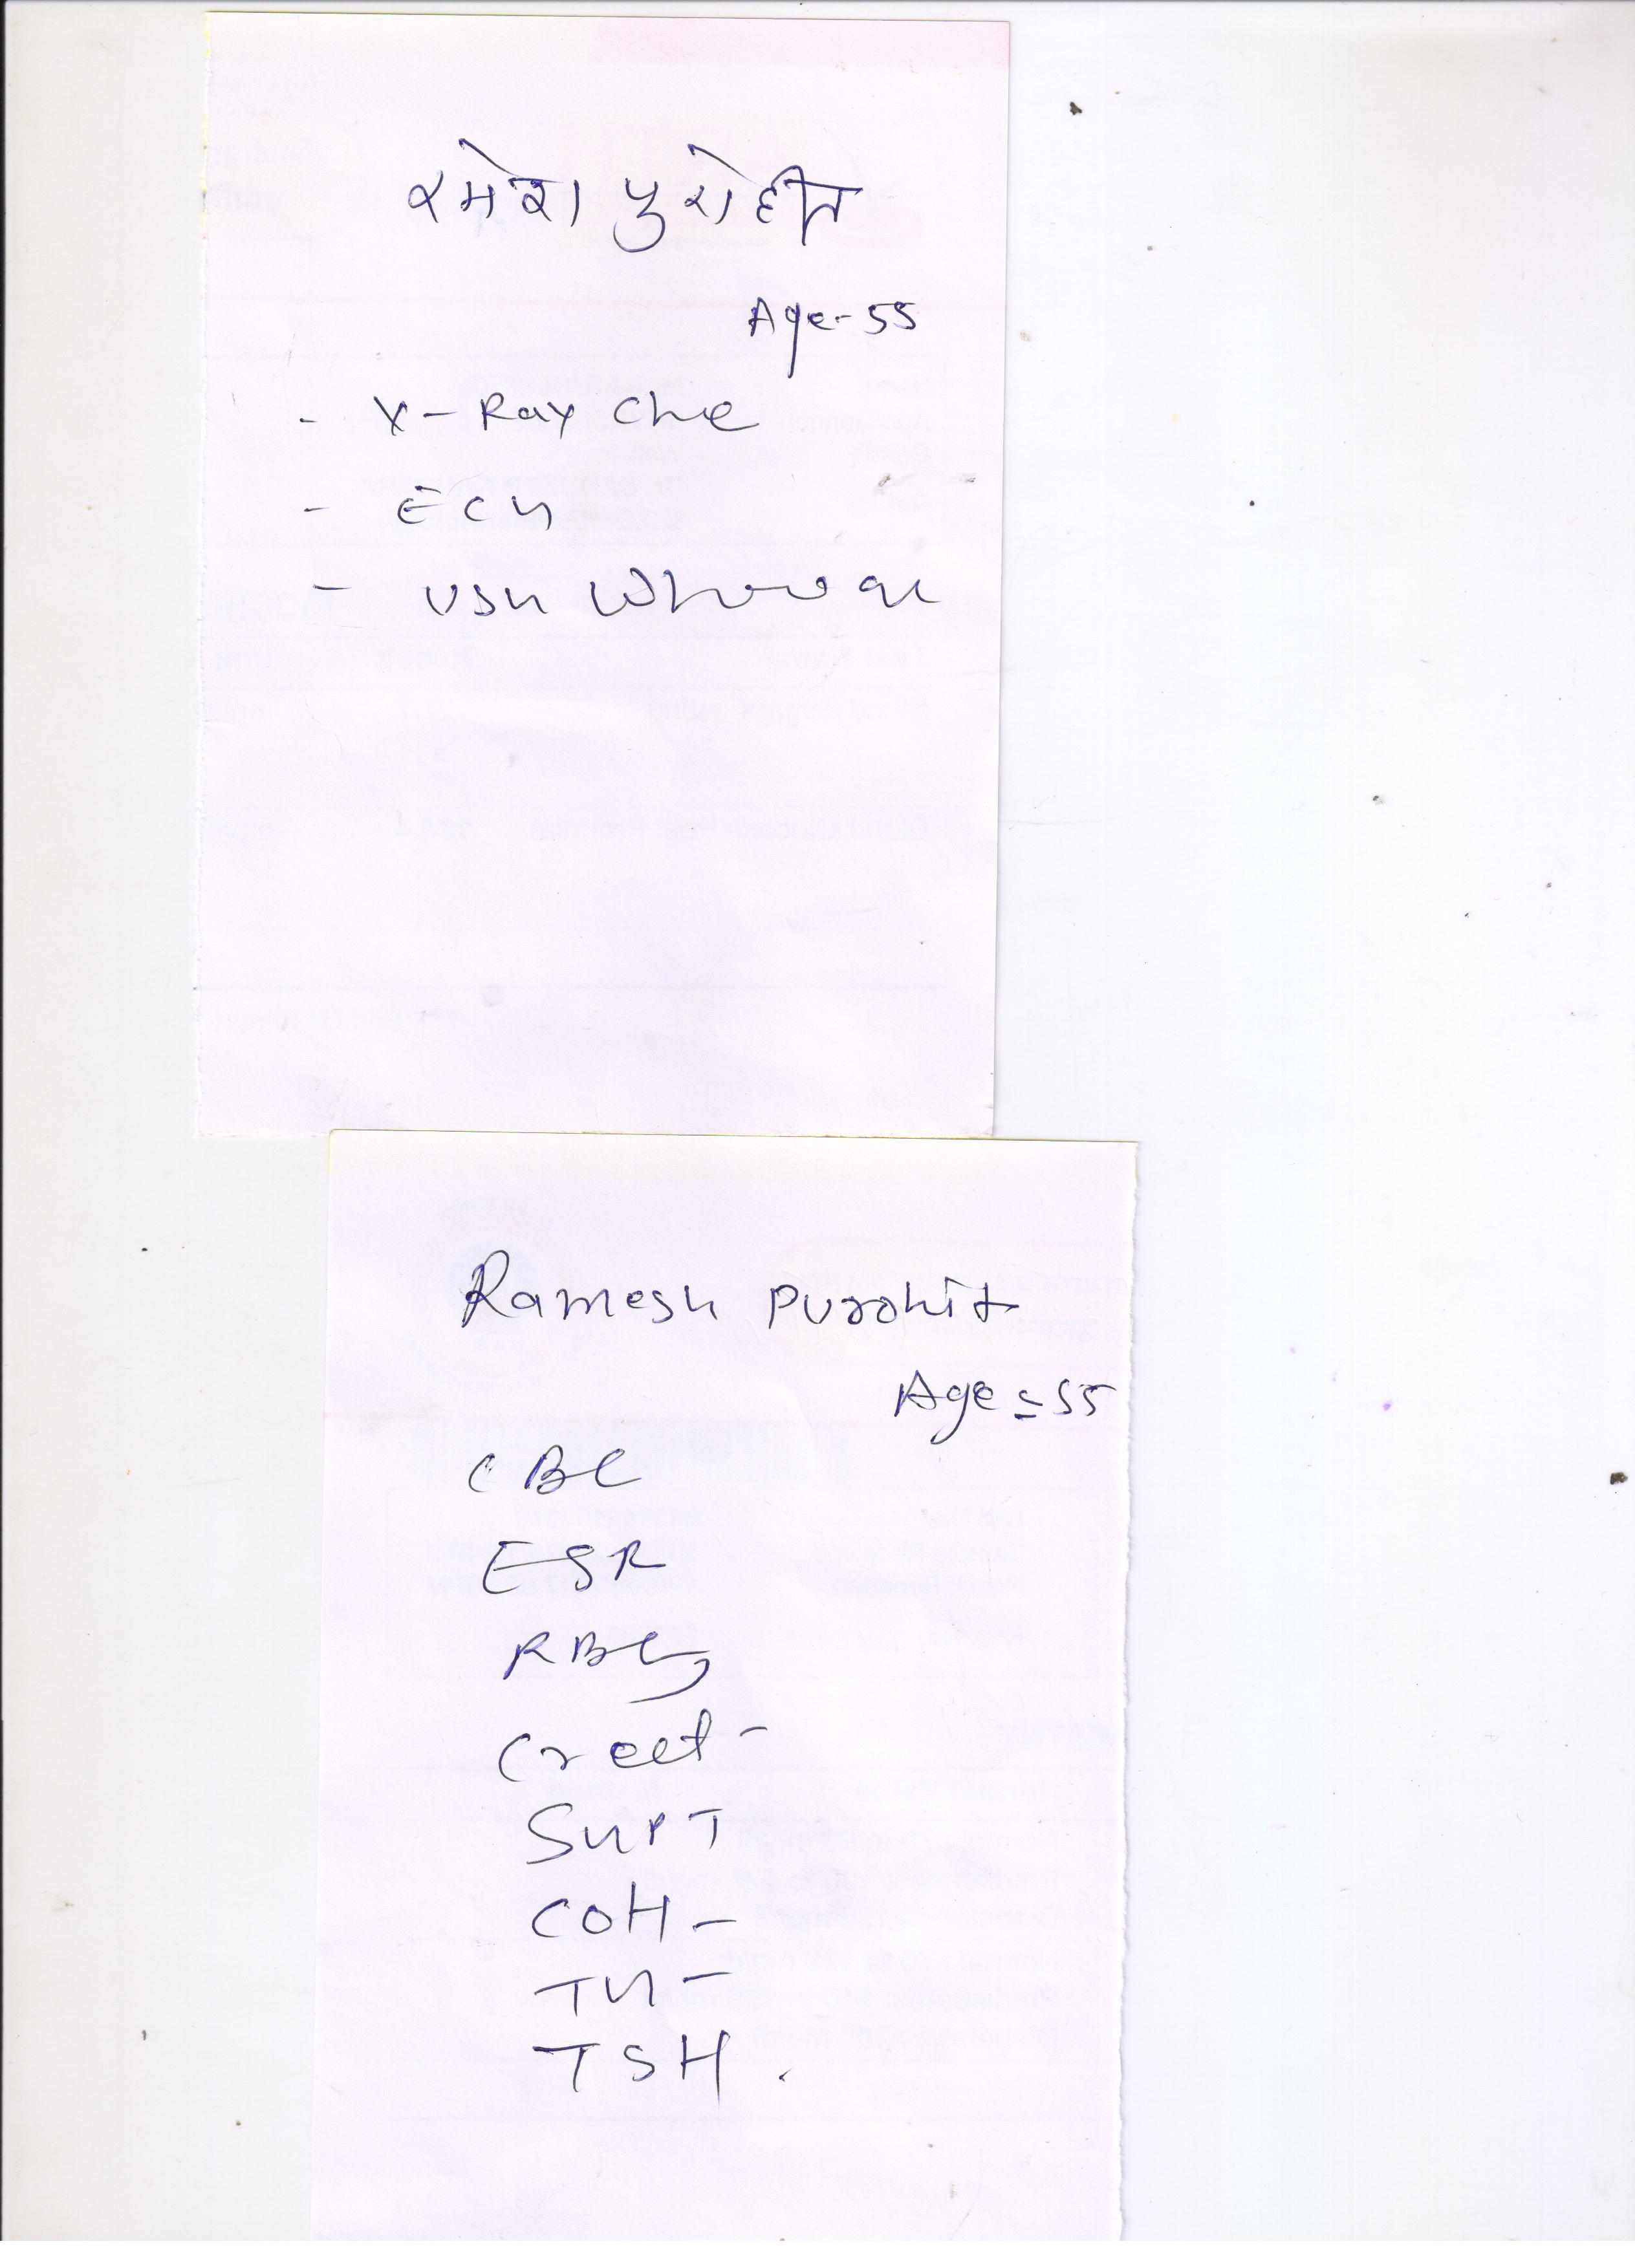 रमेश पुरोहीत
Age-55
- X-Ray Che
- ECG
- USG Whole
Ramesh Purohit
Age=55
CBC
ESR
RBG
Creat-
SGPT
COH-
TG-
TSH.